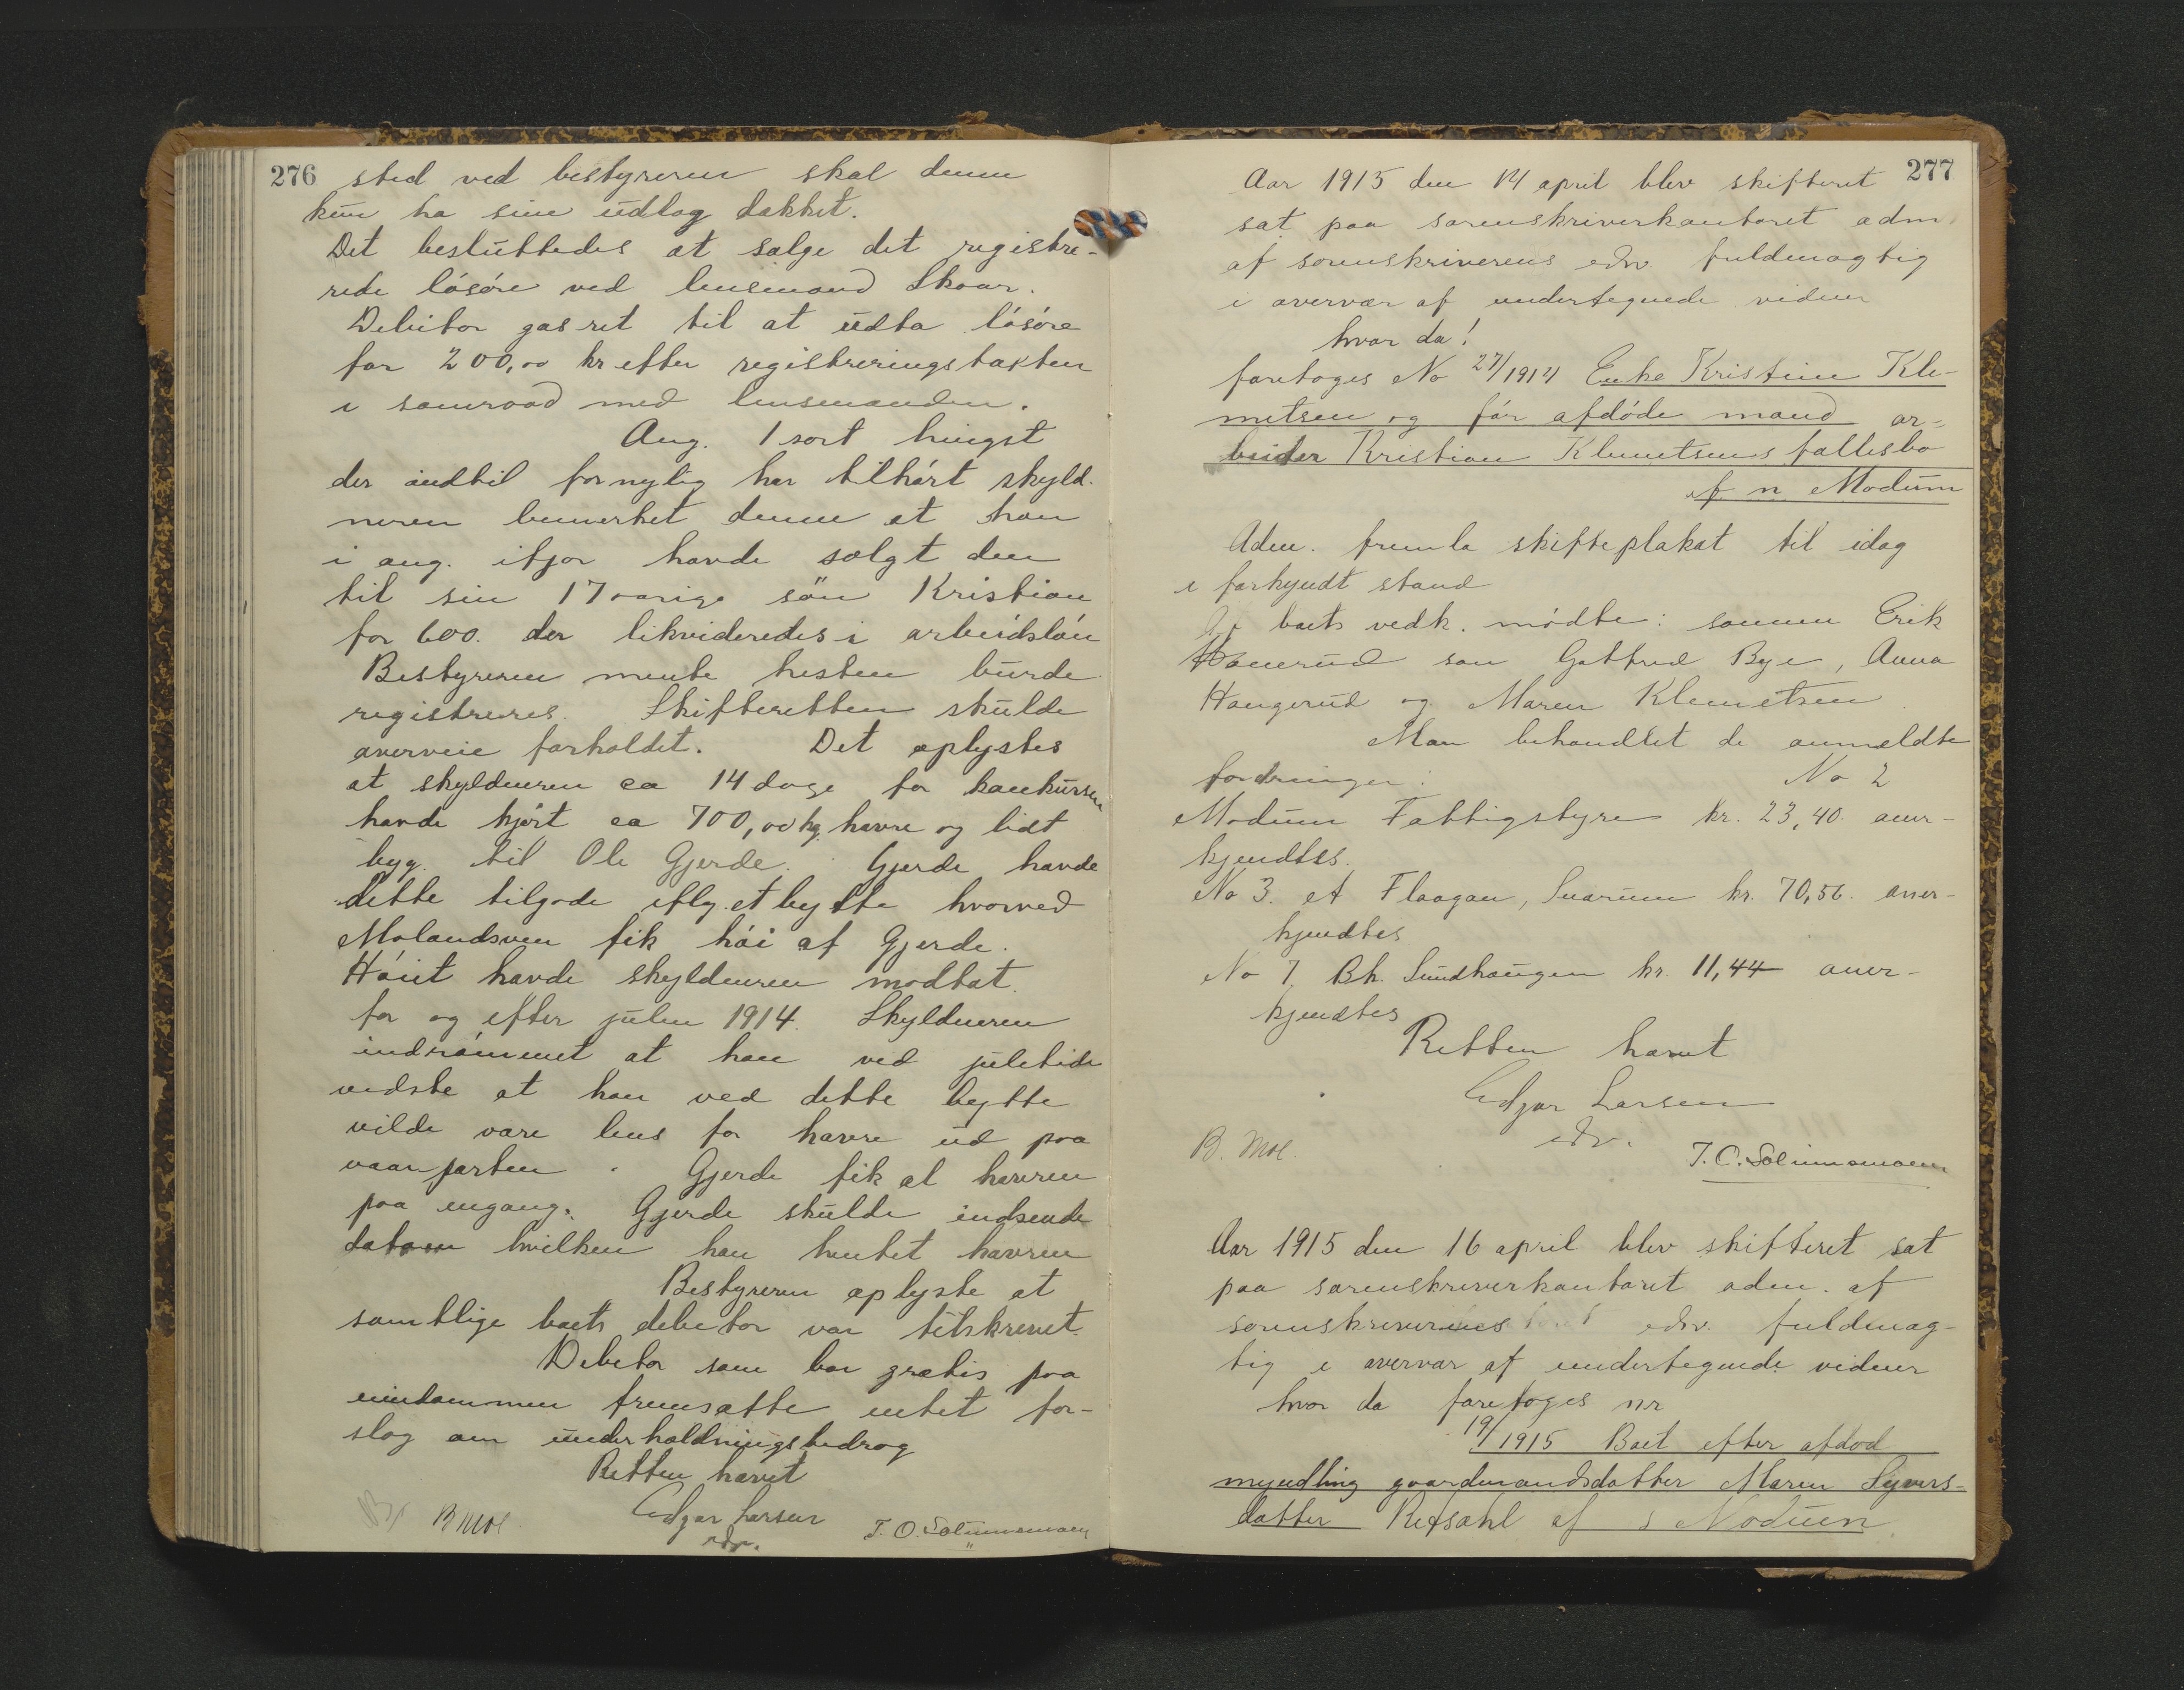 276 sted ved bestyreren skal denne
kun ha sine udlag dækket.
Det besluttedes at sælge det registre-
rede løsøre ved lensmand Skaar.
Debitor gas ret til at udta løsøre
for 200,00 kr efter registreringstakten
i samraad med lensmanden.
Ang. 1 sort hingst
der indtil fornylig har tilhørt skyld-
neren bemerket denne at han
i aug. ifjor havde solgt den
til sin 17 aarige søn Kristian
for 600. der likvideredes i arbeidsløn
Bestyreren mente hesten burde
registreres. Skifteretten skulde
overveie forholdet. Det oplystes
at skyldneren ca 14 dage før konkursen
havde kjørt ca 700,00 kg. havre og lidt
byg til Ole Gjerde. Gjerde havde
dette tilgode iflg. et bytte hvorved
Molandsveen fik høi af Gjerde.
Høiet havde skyldneren modtat
før og efter julen 1914. Skyldneren
indrømmet at han ved juletide
vidste at han ved dette bytte
vilde være lens for havre ud paa
vaarparten. Gjerde fik al havren
paa engang. Gjerde skulde indsende
datoen hvilken han hentet havren
Bestyreren oplyste at
samtlige boets debitor var tilskrevet.
Debitor som bor gratis paa
eiendommen fremsatte intet for-
slag om underholdningsbidrag
Retten hævet
B Moe. Edgar Larsen
edv. T. O. Solumsmoen
277
Aar 1915 den 14 april blev skifteret
sat paa sorenskriverkontoret adm.
af sorenskriverens edv. fuldmægtig
i overvær af undertegnede vidner
hvor da!
foretoges No 27/1914 Enke Kristine Kle-
metsen og før afdøde mand ar-
beider Kristian Klemetsens fællesbo
af n Modum
Adm. fremla skifteplakat til idag
i forkyndt stand
Af boets vedk. mødte: sønnen Erik
Hanerud søn Gotfred Bye, Anna
Haugerud og Maren Klemetsen
Man behandlet de anmeldte
fordringer: No 2
Modum Fattigstyre kr. 23,40. aner-
kjendtes.
No 3. A Flaagan, Snarum kr. 70,56. aner-
kjendtes
No 7 Bh. Sundhaugen kr. 11,44 aner-
kjendtes
Retten hævet
Edgar Larsen
edv.
B. Moe. T. O. Solumsmoen
Aar 1915 den 16 april blev skifteret sat
paa sorenskriverkontoret adm. af
sorenskriverens edv. fuldmæg-
tig i overvær af undertegnede vidner
hvor da foretoges nr
19/1915 Boet efter afdød
myndling gaardmandsdatter Maren Syvers-
datter Refsahl af s Modum